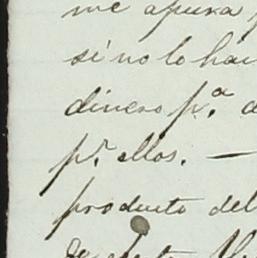 me apura
si no lo hai
dinero p.ª
p.r ellos. —
producto del